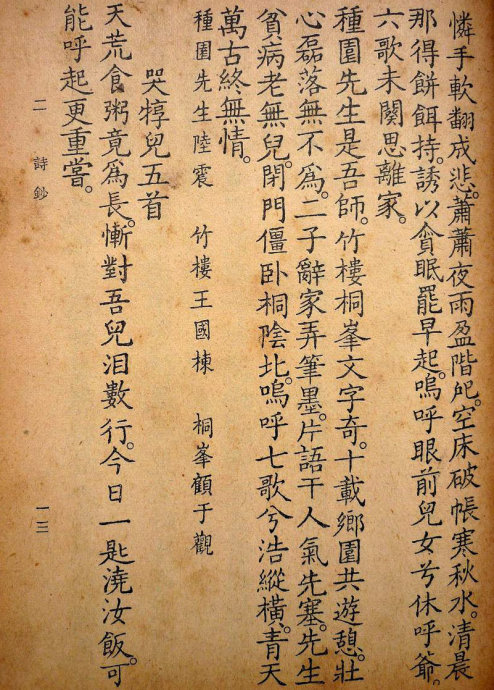 憐手軟翻成悲。蕭蕭夜雨盈階戺。空床破帳寒秋水。清晨
那得餅餌持。誘以貪眠罷早起。嗚呼眼前兒女兮休呼爺。
六歌未闋思離家。
種園先生是吾師。竹樓桐峯文字奇。十載鄉園共遊憩。壯
心磊落無不爲。二子辭家弄筆墨。片語干人氣先塞。先生
貧病老無兒。閉門僵卧桐陰北。嗚呼七歌兮浩縱橫。青天
萬古終無情。
種園先生陸震 竹樓王國棟 桐峯顧于觀
哭犉兒五首
天荒食粥竟爲長。慚對吾兒泪數行。今日一匙澆汝飯。可
能呼起更重嘗。
二 詩鈔 一三